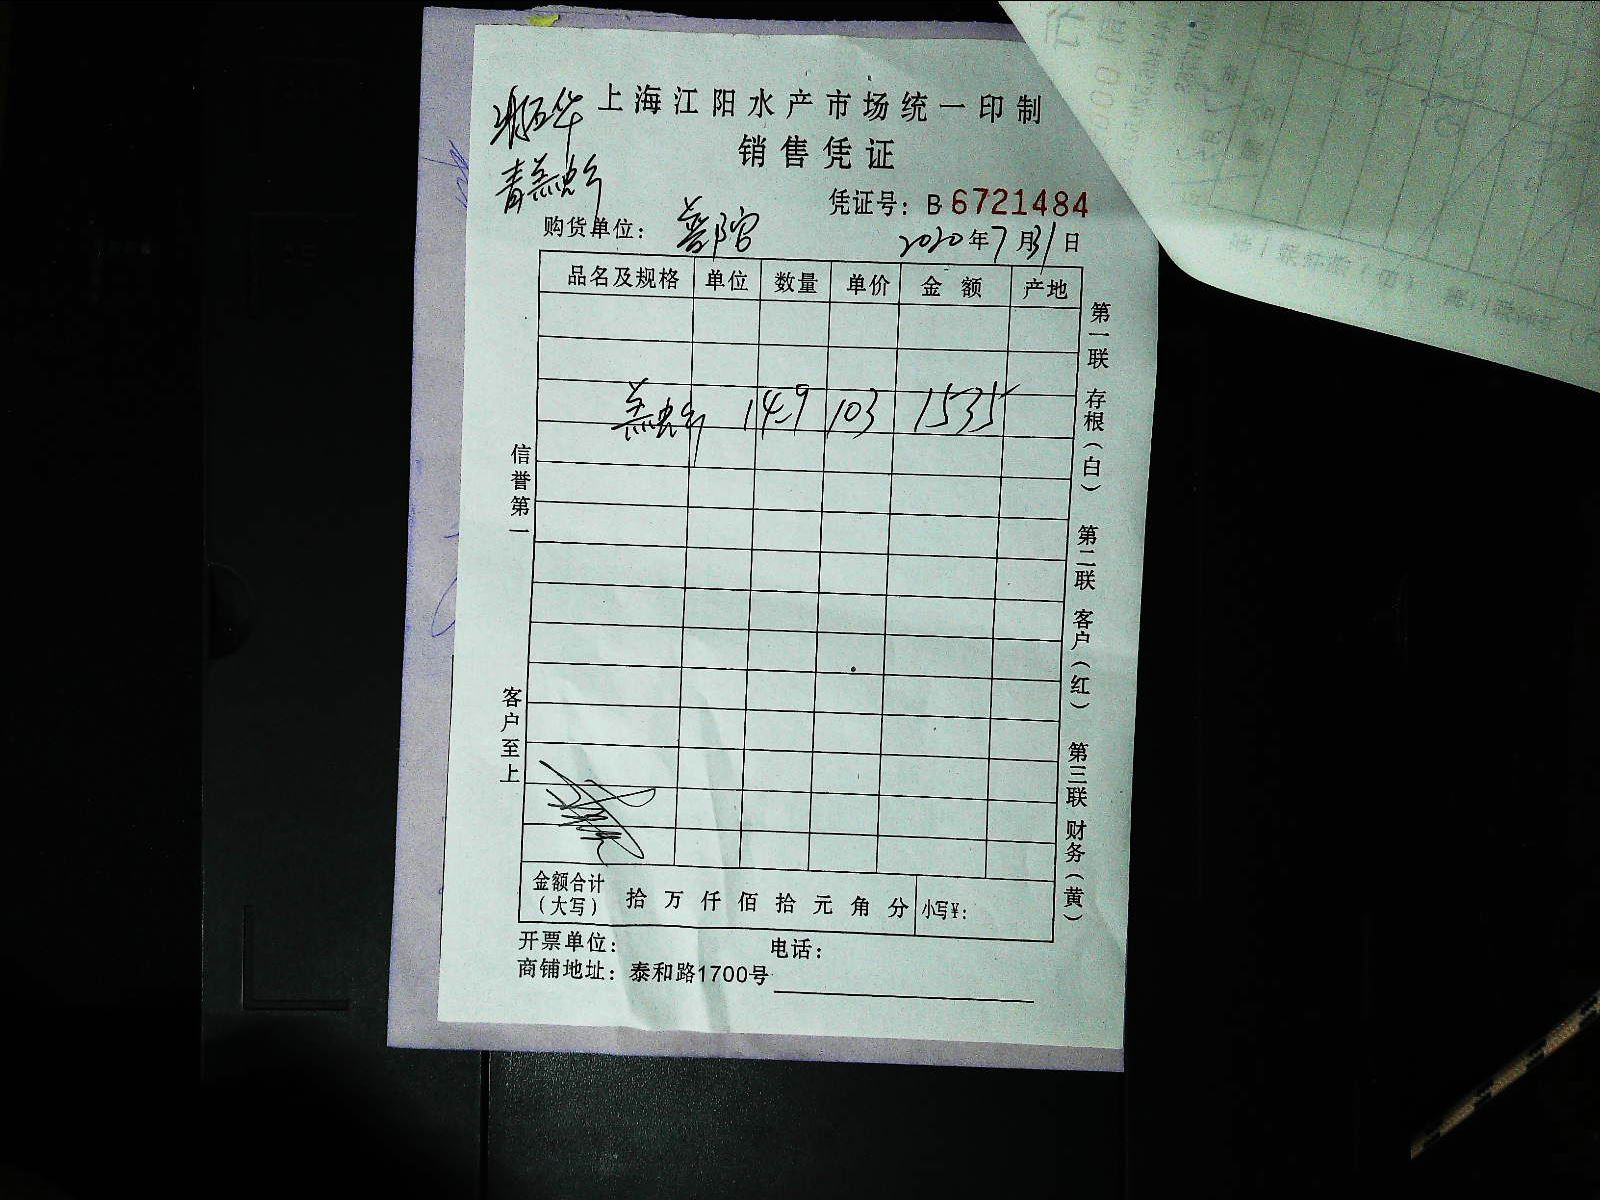 上海江阳水产市场统一印制
销售凭证
凭证号：B 6721484
购货单位：普陀
2020年7月31日
品名及规格 单位 数量 单价 金额 产地
14.9 103 1535
信誉第一
客户至上
第一联 存根（白） 第二联 客户（红） 第三联 财务（黄）
金额合计（大写） 拾 万 仟 佰 拾 元 角 分 小写¥：
开票单位： 电话：
商铺地址：泰和路1700号